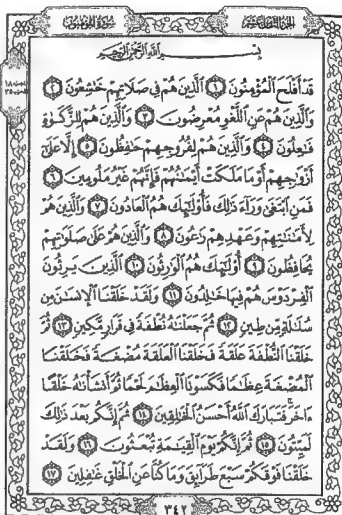 الجزء الثامن عشر
سورة المؤمنون
بسم الله الرحمن الرحيم
قَدْ أَفْلَحَ الْمُؤْمِنُونَ ١ الَّذِينَ هُمْ فِي صَلَاتِهِمْ خَاشِعُونَ ٢
وَالَّذِينَ هُمْ عَنِ اللَّغْوِ مُعْرِضُونَ ٣ وَالَّذِينَ هُمْ لِلزَّكَوٰةِ
فَاعِلُونَ ٤ وَالَّذِينَ هُمْ لِفُرُوجِهِمْ حَافِظُونَ ٥ إِلَّا عَلَىٰ
أَزْوَاجِهِمْ أَوْ مَا مَلَكَتْ أَيْمَانُهُمْ فَإِنَّهُمْ غَيْرُ مَلُومِينَ ٦
فَمَنِ ابْتَغَىٰ وَرَاءَ ذَٰلِكَ فَأُولَٰئِكَ هُمُ الْعَادُونَ ٧ وَالَّذِينَ هُمْ
لِأَمَانَاتِهِمْ وَعَهْدِهِمْ رَاعُونَ ٨ وَالَّذِينَ هُمْ عَلَىٰ صَلَوَاتِهِمْ
يُحَافِظُونَ ٩ أُولَٰئِكَ هُمُ الْوَارِثُونَ ١٠ الَّذِينَ يَرِثُونَ
الْفِرْدَوْسَ هُمْ فِيهَا خَالِدُونَ ١١ وَلَقَدْ خَلَقْنَا الْإِنسَانَ مِن
سُلَالَةٍ مِّن طِينٍ ١٢ ثُمَّ جَعَلْنَاهُ نُطْفَةً فِي قَرَارٍ مَّكِينٍ ١٣ ثُمَّ
خَلَقْنَا النُّطْفَةَ عَلَقَةً فَخَلَقْنَا الْعَلَقَةَ مُضْغَةً فَخَلَقْنَا
الْمُضْغَةَ عِظَامًا فَكَسَوْنَا الْعِظَامَ لَحْمًا ثُمَّ أَنشَأْنَاهُ خَلْقًا
آخَرَ فَتَبَارَكَ اللَّهُ أَحْسَنُ الْخَالِقِينَ ١٤ ثُمَّ إِنَّكُم بَعْدَ ذَٰلِكَ
لَمَيِّتُونَ ١٥ ثُمَّ إِنَّكُمْ يَوْمَ الْقِيَامَةِ تُبْعَثُونَ ١٦ وَلَقَدْ
خَلَقْنَا فَوْقَكُمْ سَبْعَ طَرَائِقَ وَمَا كُنَّا عَنِ الْخَلْقِ غَافِلِينَ ١٧
٣٤٢